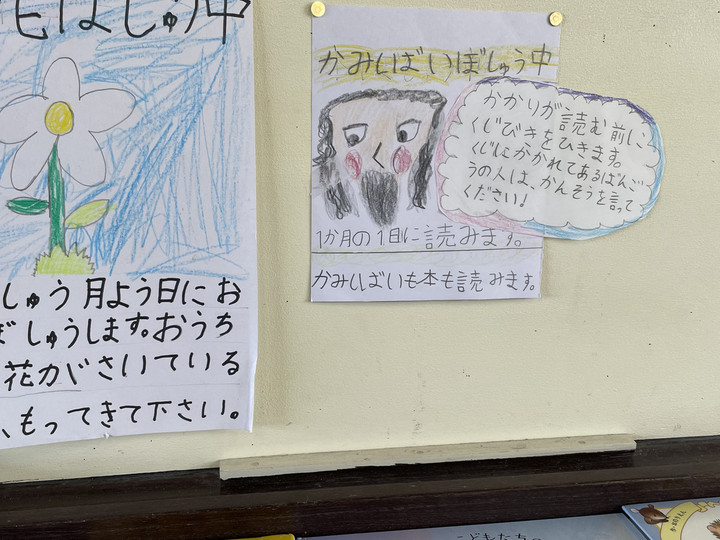 花ぼしゅう中
しゅう月よう日にお
ぼしゅうします。おうち
花がさいている
、もってきて下さい。
かみしばいぼしゅう中
1か月の1日に読みます。
かみしばいも本も読みます。
かかりが読む前に
くじびきをひきます。
くじにかかれてあるばんご
うの人は、かんそうを言って
ください!
こどもたちの